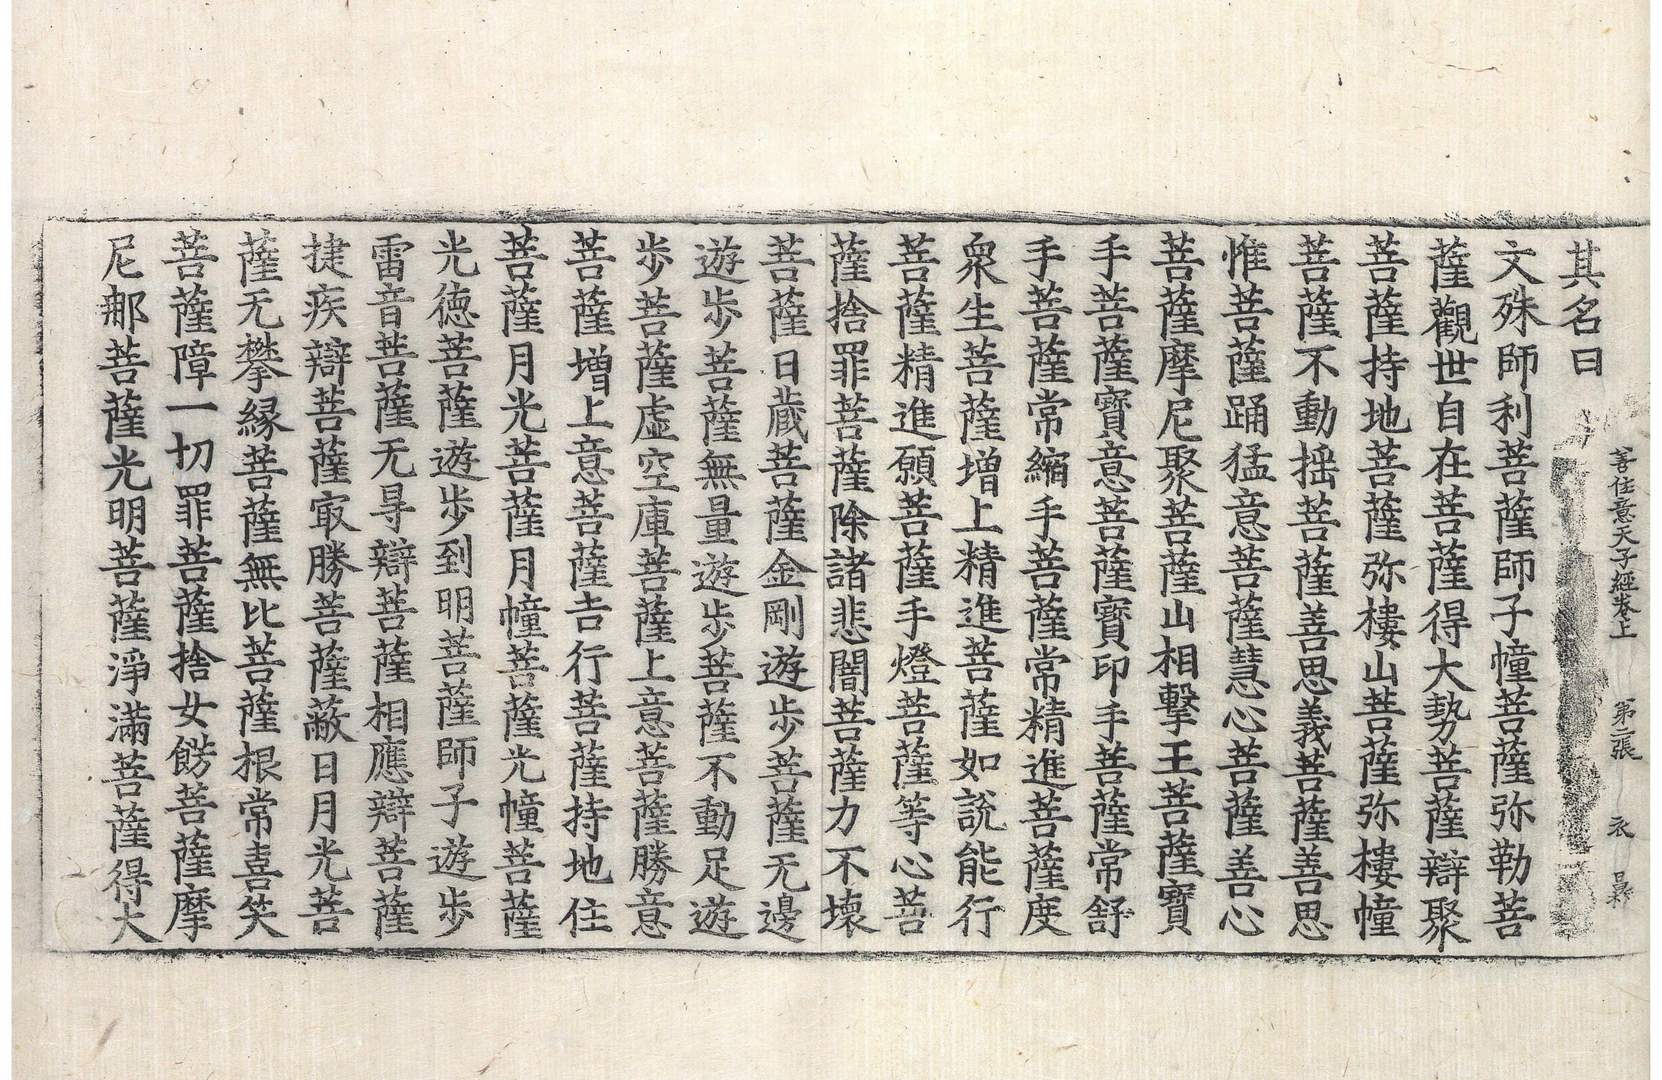 善住意天子經卷上 第二張 衣
其名曰
文殊師利菩薩師子幢菩薩弥勒菩
薩觀世自在菩薩得大勢菩薩辯聚
菩薩持地菩薩弥樓山菩薩弥樓幢
菩薩不動揺菩薩善思義菩薩善思
惟菩薩踊猛意菩薩慧心菩薩善心
菩薩摩尼聚菩薩山相擊王菩薩寶
手菩薩寶意菩薩寶印手菩薩常舒
手菩薩常縮手菩薩常精進菩薩度
衆生菩薩增上精進菩薩如說能行
菩薩精進願菩薩手燈菩薩等心菩
薩捨罪菩薩除諸悲闇菩薩力不壞
菩薩日蔵菩薩金剛遊步菩薩无邊
遊步菩薩無量遊步菩薩不動足遊
步菩薩虛空庫菩薩上意菩薩勝意
菩薩增上意菩薩吉行菩薩持地住
菩薩月光菩薩月幢菩薩光幢菩薩
光德菩薩遊步到明菩薩師子遊步
雷音菩薩无㝵辯菩薩相應辯菩薩
捷疾辯菩薩㝡勝菩薩蔽日月光菩
薩无攀縁菩薩無比菩薩根常喜笑
菩薩障一切罪菩薩捨女餝菩薩摩
尼郍菩薩光明菩薩淨滿菩薩得大